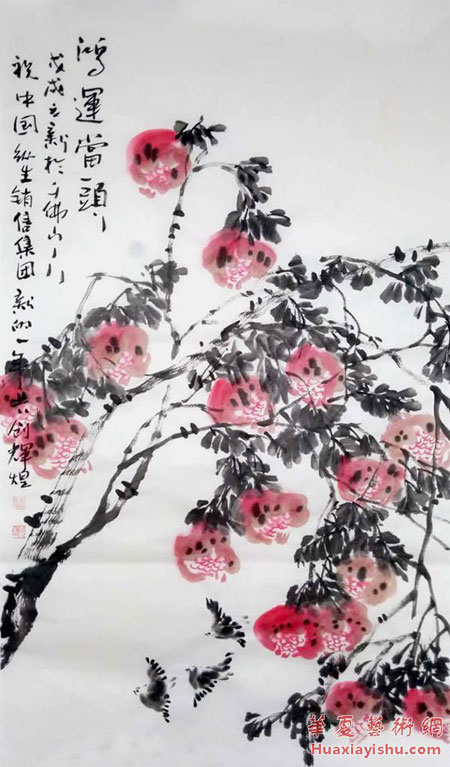 鸿運當頭
戊戌 新於千佛山
祝中国 生销售集团新的一年共創輝煌
華夏藝術網
Huaxiayishu.com